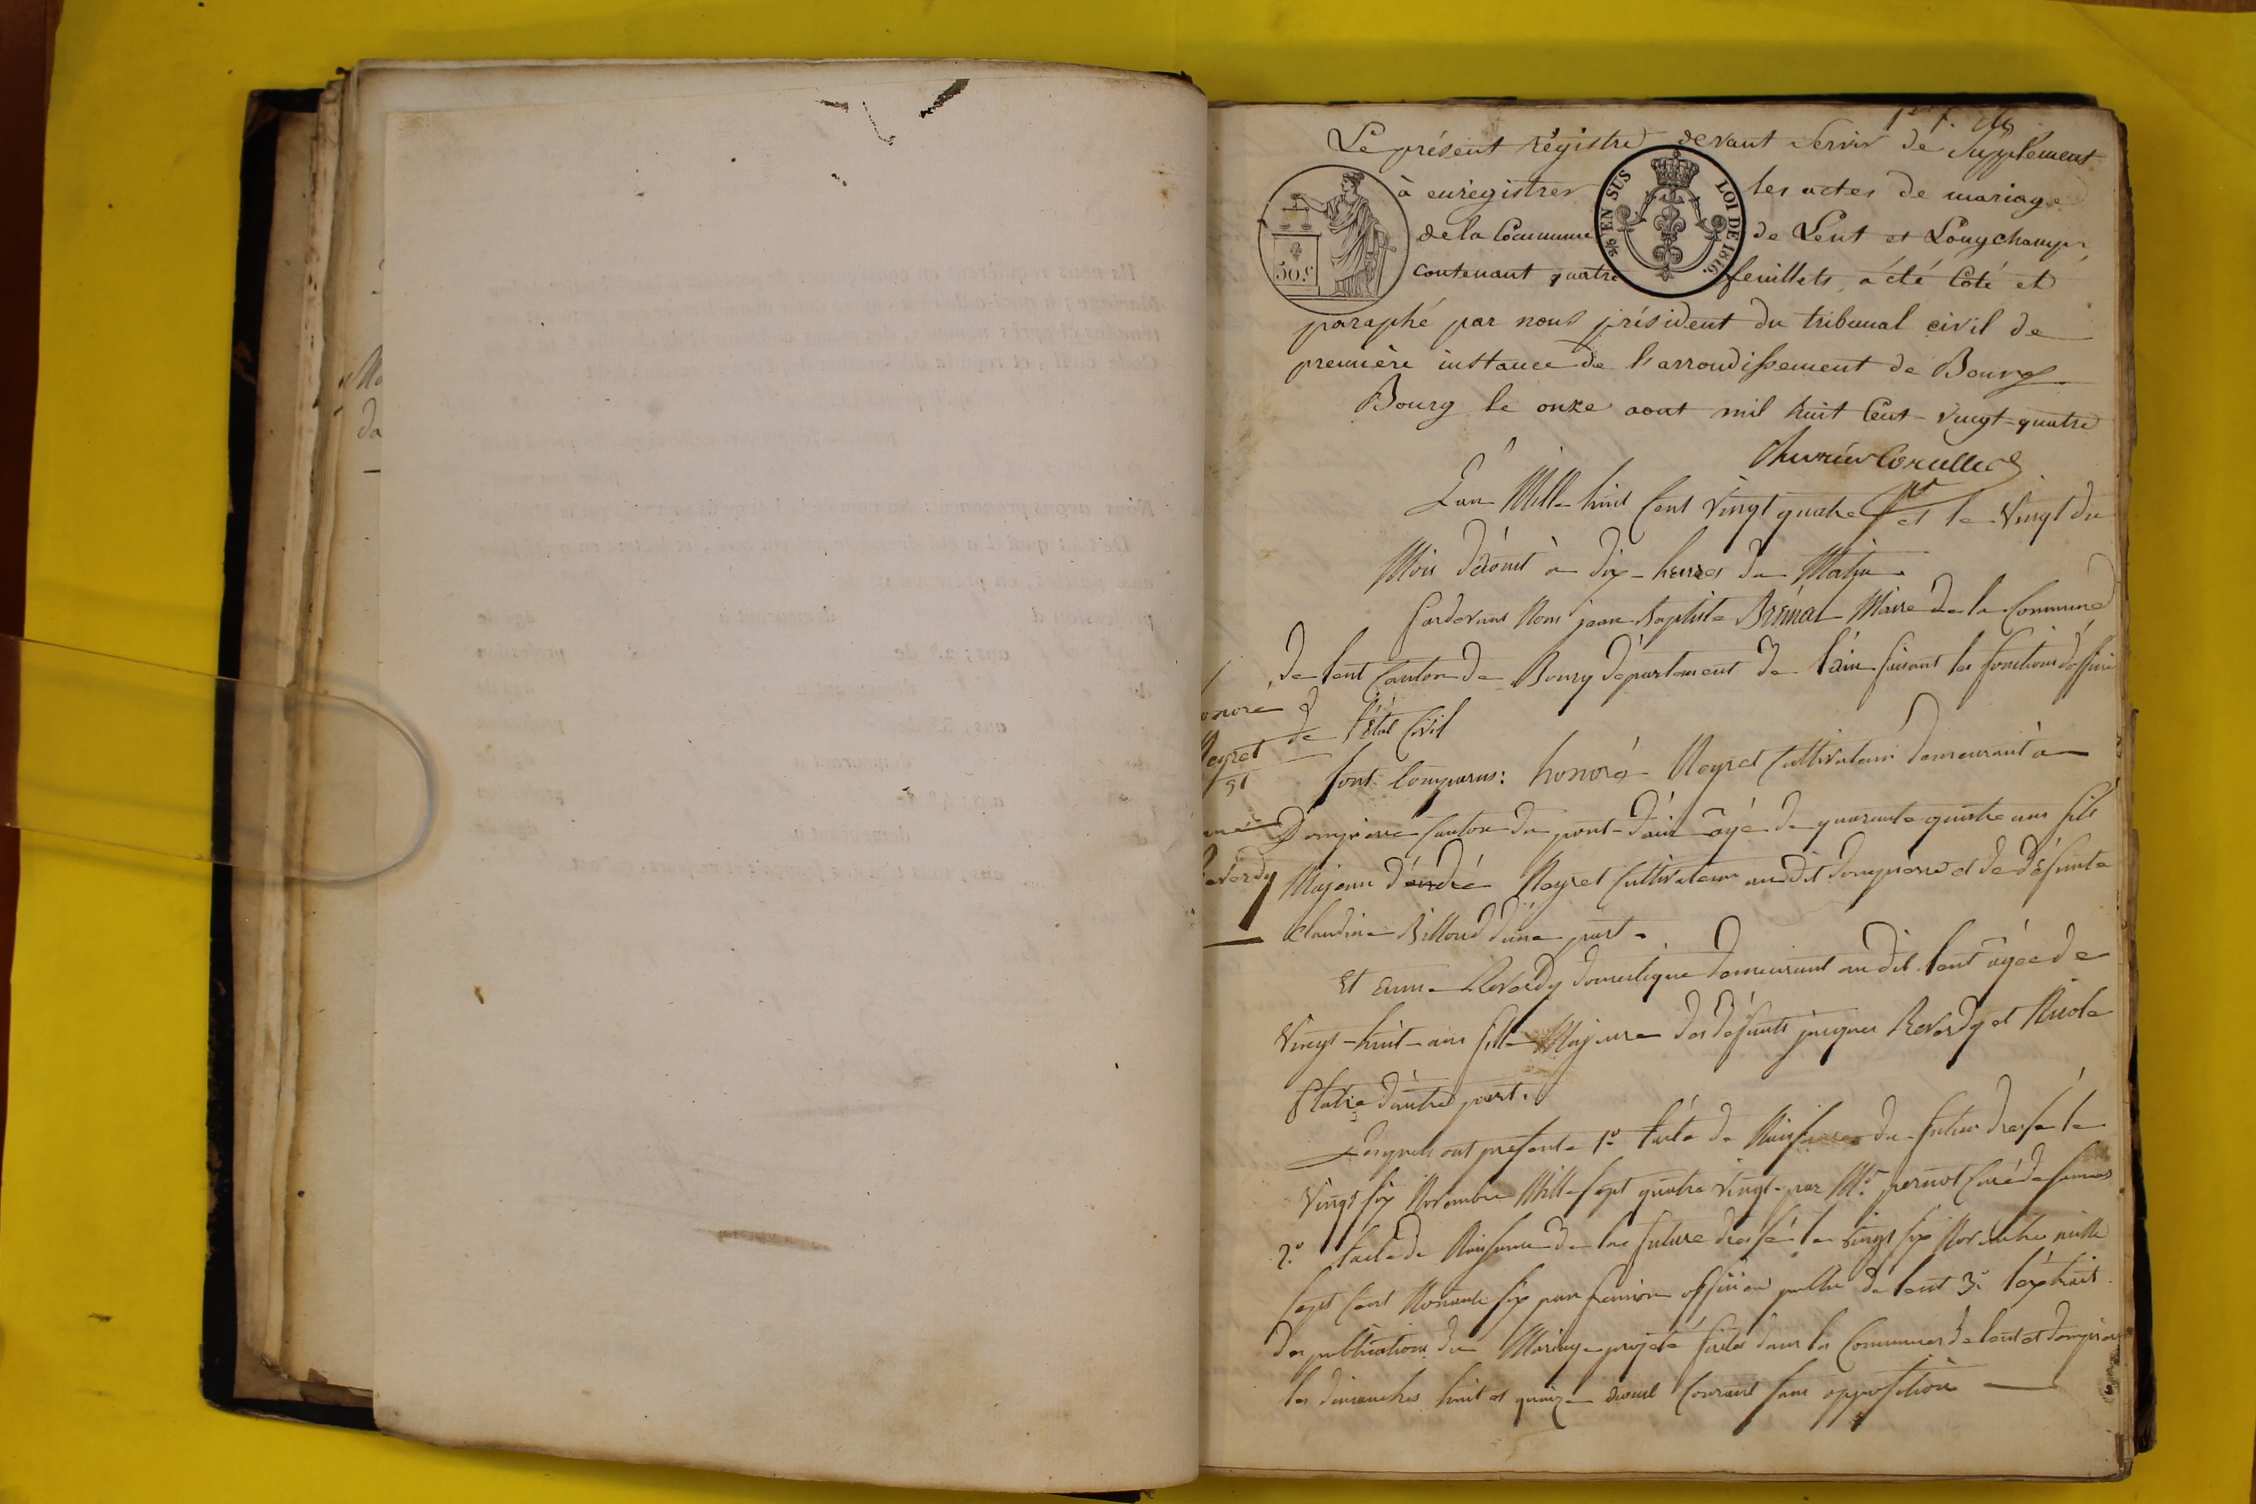 1er f.
Le présent régistre devant Servir de Supplément
à enrégistrer les actes de mariage
de la Commune de Lent et Longchamp,
contenant quatre feuillets, a été Coté et
paraphé par nous président du tribunal civil de
première instance de l'arrondissement de Bourg
Bourg le onze aout mil huit Cent-vingt-quatre
50 c.
EN SUS LOI DE 1816.
L'an Mille huit Cent vingt quatre et le vingt du
Mois d'août à dix-heures du Matin
Pardevant Nous jean Baptiste Maire de la Commune
de lent Canton de Bourg département de l'ain faisant les fonctions d'officier
de l'état Civil
Sont Comparus: honoré Neyret Cultivateur demeurant à
Dompierre Canton du pont-d'ain âgé de quarante quatre ans fils
Majeur d'andré Neyret Cultivateur audit dompierre et de défunte
Claudine Billoud d'une part
Et anne Reverdy domestique demeurant audit lent âgée de
vingt-huit ans fille Majeure des défunts jacques Reverdy et Nicole
d'autre part.
Lesquels ont présenté 1o l'acte de Naissance du futur dressé le
vingt six Novembre Mille sept quatre vingt par Mr. Curé de
2o l'acte de Naissance de la future dressé le vingt six Novembre mille
sept Cent Nonante six par officier public de lent 3o l'extrait
des publications du Mariage projeté faites dans les Communes de lent et dompierre
les dimanches huit et quinze aout Courant sans opposition
onoré
Neyret
et
Reverdy